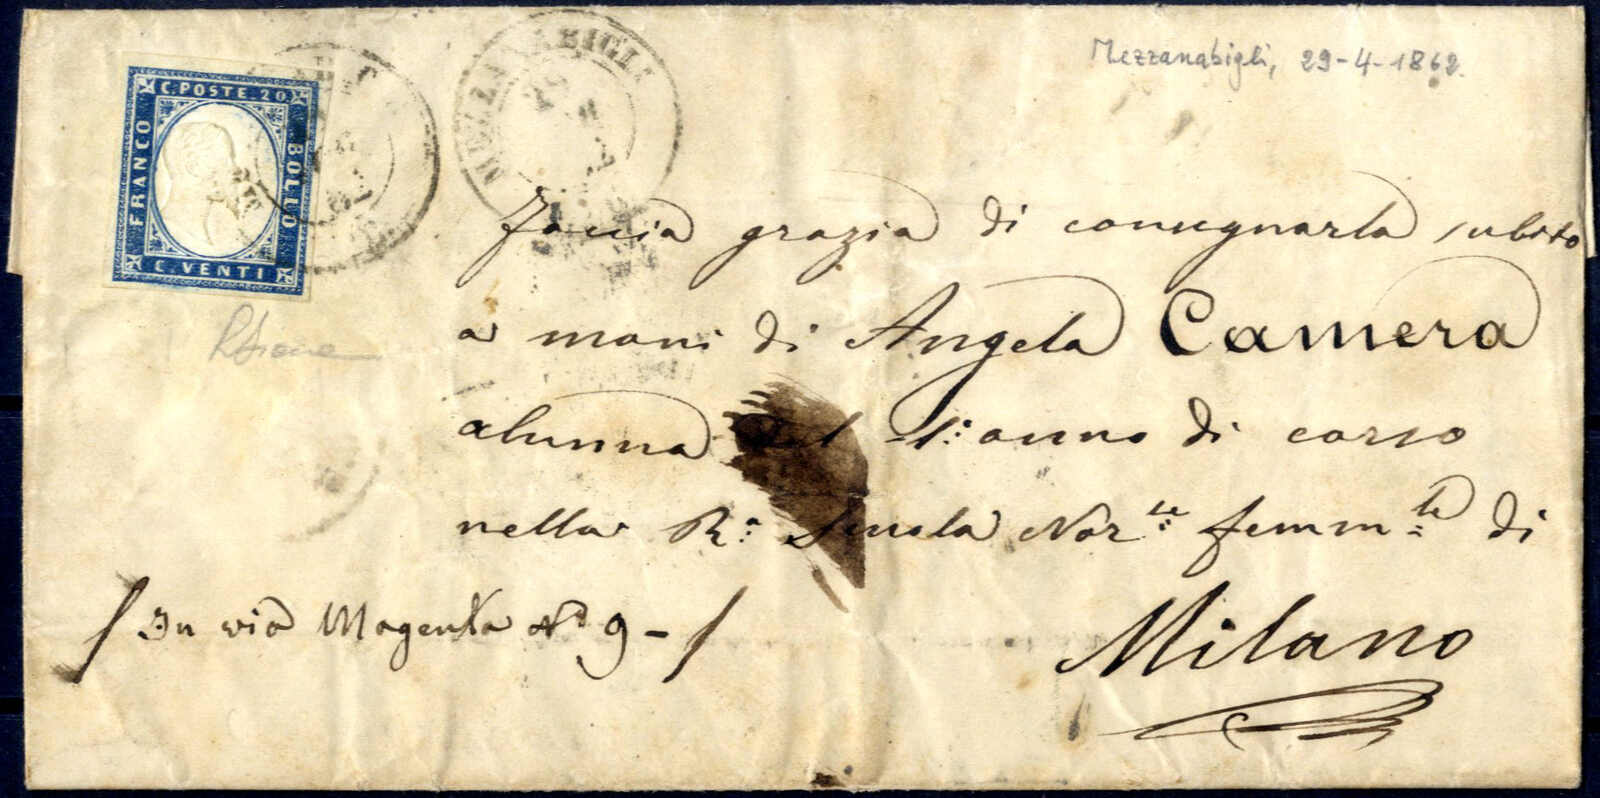 C. POSTE. 20
FRANCO
BOLLO
C. VENTI
MEZZANABIGLI
Mezzanabigli, 29-4-1862.
Faccia grazia di consegnarla subito
a mani di Angela Camera
alunna del 1.° anno di corso
nella R.ª Scuola Nor.le femm.le di
Milano
/ In via Magenta N° 9 - /